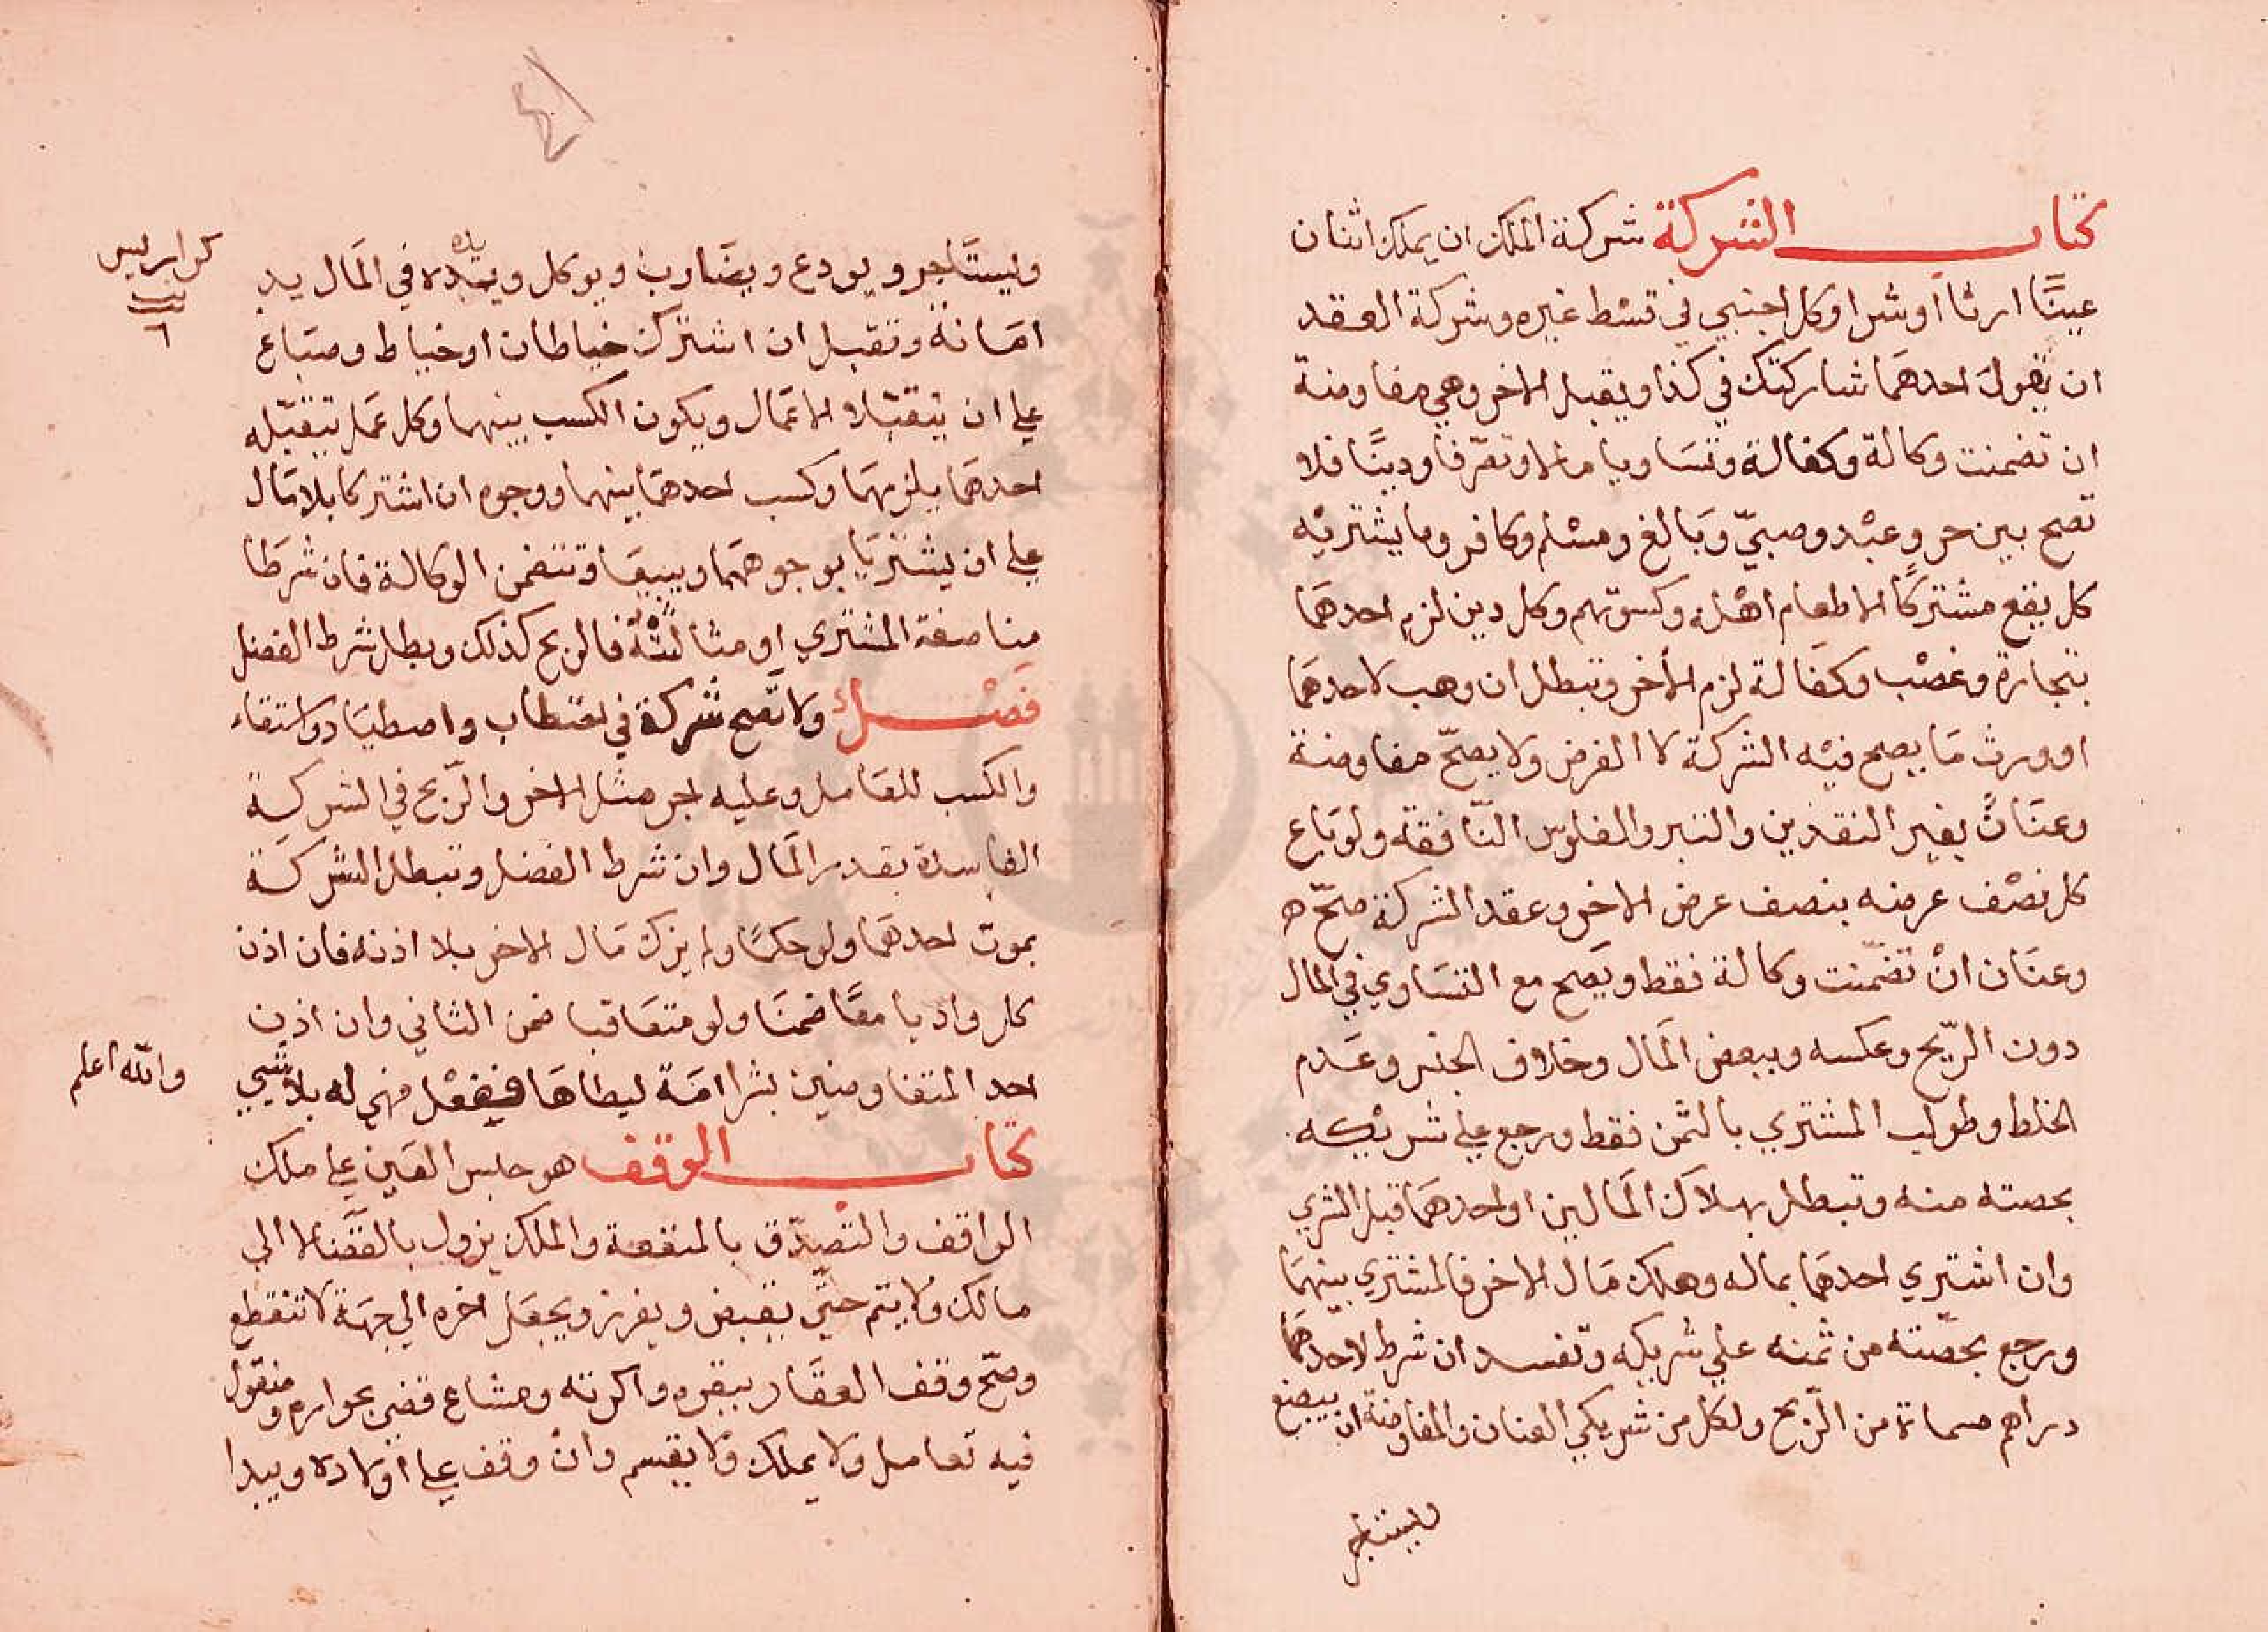 كتاب الشركة شركة الملك ان يملك اثنان
عينًا ارثاً او شرا وكل اجنبي في قسْط غيره وشركة العقد
ان يقول احدهمَا شاركتك في كذا ويقبل الاخر وهي مفاوضة
ان تضمنت وكالة وكفالة وتسَاويا مالا وتصّرفا ودينًا فلا
تصح بين حر وعبْد وصبيّ وَبَالغ ومسْلم وكافر وما يشتريْه
كل يقع مشتركًا الا طعام اهْله وكسوتهم وكل دين لزم احدهمَا
بتجارة وغصْب وكفَالة لزم الأخر وتبطل ان وهب لاحدهمَا
او ورث مَا يصح فيْه الشركة لا العرض ولا يصحّ مفاوضة
وعنَانٌ بغير النقدين والتبر والفلوس النّافقة ولو بَاع
كل نصْف عرضه بنصف عرض الاخر وعقد الشركة صحّ ه
وعنَان انْ تضمّنت وكالة فقط ويَصح مع التسَاوي في المال
دون الرّبح وعكسه وببعض المَال وخلاف الجنس وعَدم
الخلط وطولب المشتري بالثمن فقط ورجع على شريْكه
بحصته منه وتبطل بهلاك المَالين او احدهمَا قبل الشري
وان اشتري احدهمَا بماله وهلك مَال الاخر فالمشتري بينهمَا
ورجع بحصّته من ثمنه علي شريكه وتفسد ان شرط لاحدهمَا
دراهم مسماة من الرّبح ولكل من شريكي العنان والمفاوضة ان يبضع
ويستاجر
ويستَاجر ويودع ويضَارب ويوكل ويده في المَال يد
امَانة وتقبل ان اشترك خياطان او خياط وصبَاغ
على ان يتقبّلا الاعمَال ويكون الكسب بينهما وكل عمَل يتقبّله
احدهمَا يلزمهمَا وكسب احدهمَا بينهما ووجوه ان اشتركا بلا مَال
على ان يشتريَا بوجوههمَا ويبيعَا وتتضمن الوكالة فان شرطَا
مناصفة المشتري او مثالثْته فالربح كذلك وبطل شرط الفضل
فصْل ولا تَصح شركة في احتطاب واصطيَاد واستقاء
والكسب للعَامل وعليه اجر مثل الاخر والرّبح في الشركة
الفاسدة بقدر المَال وان شرط الفضل وتبطل الشركة
بموت احدهمَا ولو حكمًا ولم يزك مَال الاخر بلا اذنه فان اذن
كل واديا معًا ضمنَا ولو متعَاقبا ضمن الثاني وان اذن
احد المتفاوضين بشرا امَة ليطاهَا ففعْل فهي له بلا شيي
والله اعلم
كتاب الوقف هو حبس العَين على ملك
الواقف والتصدّق بالمنفعة والملك يزول بالقضَا لا الي
مالك ولا يتم حتّي يقبض ويفرز ويجعَل اخره الي جهَة لا تنقطع
وصّح وقف العقَار ببقره واكرته ومشاع قضي بجوازه ومنقول
فيه تعامل ولا يملك ولا يقسم وانْ وقف على اوْلاده ويبدا